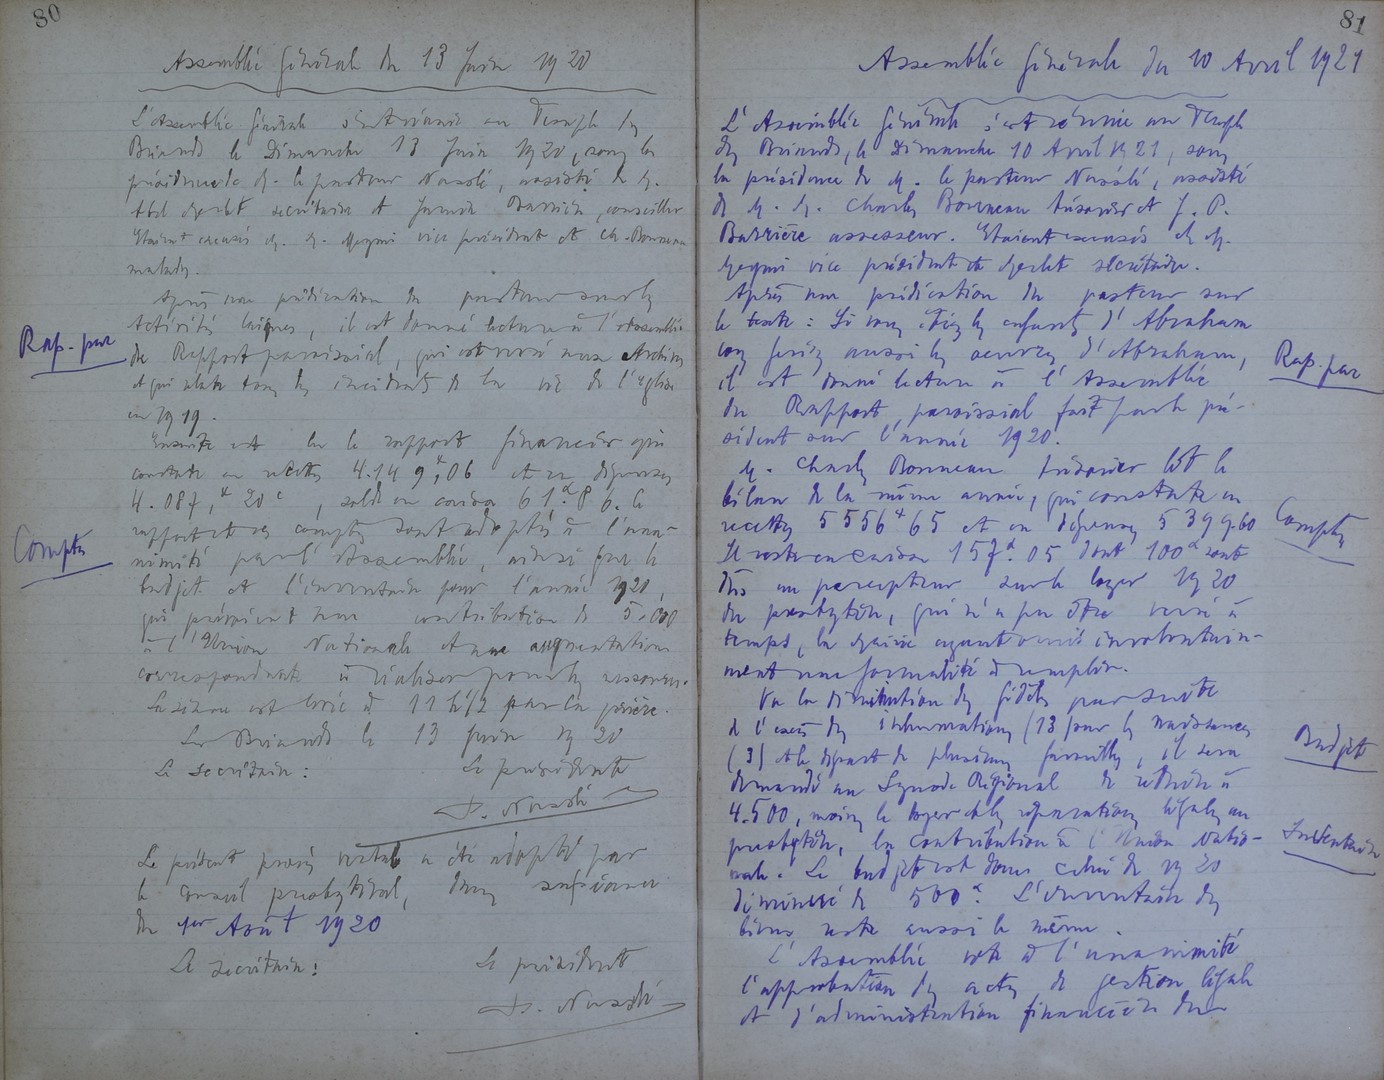 80
Assemblée Générale du 13 Juin 1920
L'Assemblée Générale s'est réunie au Temple des
Briands le Dimanche 13 Juin 1920, sous la
présidence de M. le pasteur Nasslé, assisté de M.
secrétaire et Barrière, conseiller
Etaient excusés M. M. vice président et Ch. Bonneau
malades.
Après une prédication du pasteur sur les
Activités laïques, il est donné lecture à l'Assemblée
Rap. par
du Rapport paroissial, qui est versé aux Archives
et qui relate tous les incidents de la vie de l'Eglise
en 1919.
Ensuite est lu le rapport financier qui
constate en recettes 4.149f,06 et en dépenses
4.087,f 20c, solde en caisse 61f.86. Le
Comptes
rapport et les comptes sont adoptés à l'una-
nimité par l'Assemblée, ainsi que le
budget et l'inventaire pour l'année 1921,
qui prévoient une contribution de 5.000
à l'Union Nationale et une augmentation
correspondante à réaliser pour les ressources.
La séance est levée à 11 h 1/2 par la prière.
Les Briands le 13 juin 1920
Le Secrétaire : Le président
Nasslé
Le présent procès verbal a été adopté par
le Conseil presbytéral, dans sa séance
du 1er Août 1920
Le Secrétaire : Le président
Nasslé
81
Assemblée Générale du 10 Avril 1921
L'Assemblée Générale s'est réunie au Temple
des Briands, le Dimanche 10 Avril 1921, sous
la présidence de M. le pasteur Nasslé, assisté
de M. M. Charles Bonneau trésorier et J. P.
Barrière assesseur. Etaient excusés M. M.
vice président et secrétaire.
Après une prédication du pasteur sur
le texte : Si vous étiez les enfants d'Abraham
vous feriez aussi les œuvres d'Abraham,
Rap. par
il est donné lecture à l'Assemblée
du Rapport paroissial fait par le pré-
sident sur l'année 1920.
M. Charles Bonneau trésorier lit le
bilan de la même année, qui constate en
Comptes
recettes 5556f65 et en dépenses 5399.60
Il reste en caisse 157f.05 dont 100f sont
dûs au percepteur sur le loyer 1920
du presbytère, qui n'a pu être versé à
temps, la mairie ayant omis involontaire-
ment une formalité à remplir.
Vu la diminution des fidèles par suite
de l'excès des inhumations (13) sur les naissances
Budget
(3) et le départ de plusieurs familles, il sera
demandé au Synode Régional de réduire à
4.500, moins le loyer et les réparations légales au
presbytère, la contribution à l'Union Natio-
Inventaire
nale. Le budget est donc celui de 1920
diminué de 500f. L'inventaire des
biens reste aussi le même.
L'Assemblée vote à l'unanimité
l'approbation des actes de gestion légale
et d'administration financière du